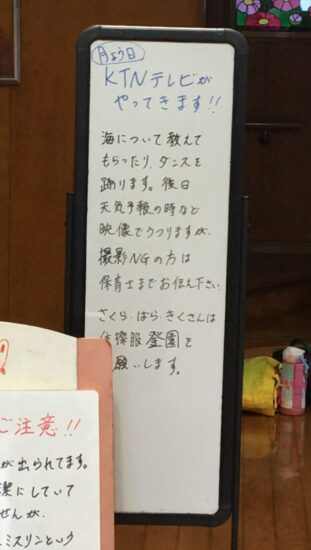 月よう日
KTNテレビが
やってきます!!
海について教えて
もらったり、ダンスを
踊ります。後日
天気予報の時など
映像でうつりますが、
撮影NGの方は
保育士までお伝え下さい。
さくら・ばら・きくさんは
体操服登園を
願いします。
ご注意!!
が出られてます。
潔にしていて
せんが、
ミスリンという